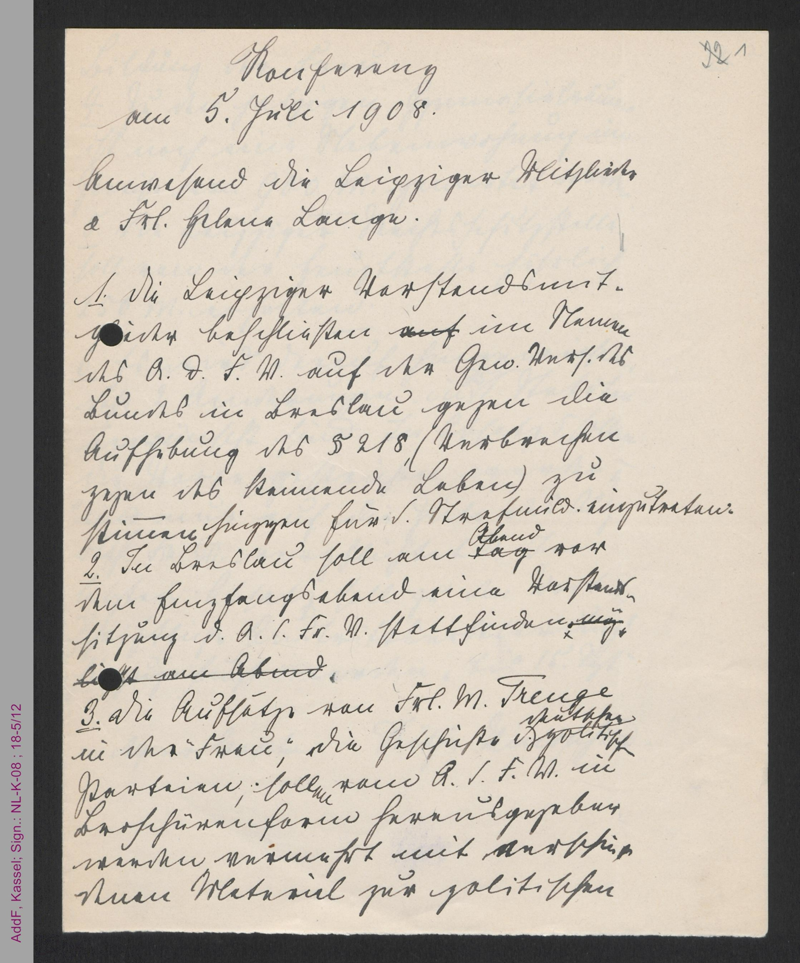 32 1
Konferenz
am 5. Juli 1908.
Anwesend die Leipziger Mitglieder
u Frl. Helene Lange.
1. Die Leipziger Vorstandsmit-
glieder beschließen auf im Namen
des A. D. F. V. auf der Gen. Vers. des
Bundes in Breslau gegen die
Aufhebung des § 218, (Verbrechen
gegen das keimende Leben) zu
stimmen hingegen für d. Strafmild. einzutreten.
2. In Breslau soll am Tag Abend vor
dem Empfangsabend eine Vorstands-
sitzung d. A. d. Fr. V. stattfinden, mög-
lichst am Abend.
3. Die Aufsätze von Frl. W. Trenge
in der "Frau", die Geschichte d. deutschen politisch
Parteien, sollen vom A. d. F. V. in
Broschürenform herausgegeben
werden vermehrt mit verschie-
denen Material zur politischen
AddF, Kassel; Sign.: NL-K-08 ; 18-5/12